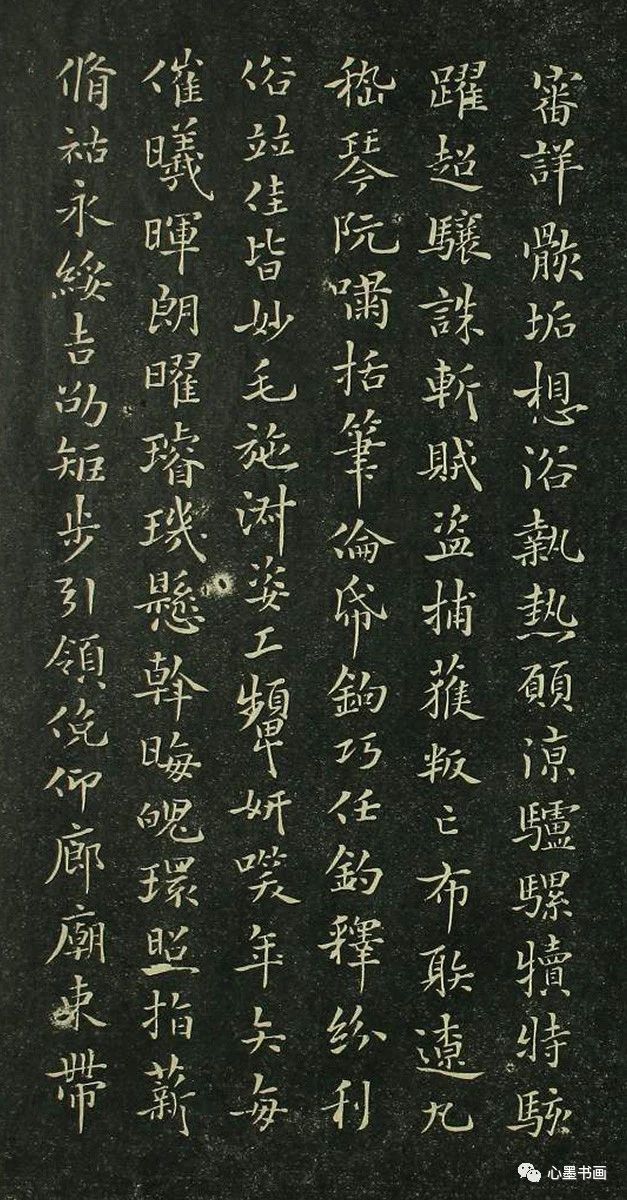 審詳骸垢想浴執熱願涼驢騾犢特駭
躍超驤誅斬賊盜捕獲叛亡布射遼丸
嵇琴阮嘯恬筆倫帋鈞巧任釣釋紛利
俗竝佳皆妙毛施淑姿工顰妍笑年矢每
催曦暉朗曜璿璣懸斡晦魄環照指薪
脩祜永綏吉劭矩步引領俛仰廊廟束帶
心墨书画